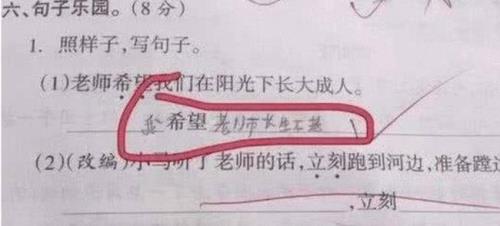 六、句子乐园。(8分)
1. 照样子,写句子。
(1)老师希望我们在阳光下长大成人。
我希望老师长生不老
(2)(改编)小马听了老师的话,立刻跑到河边,准备蹚过
,立刻